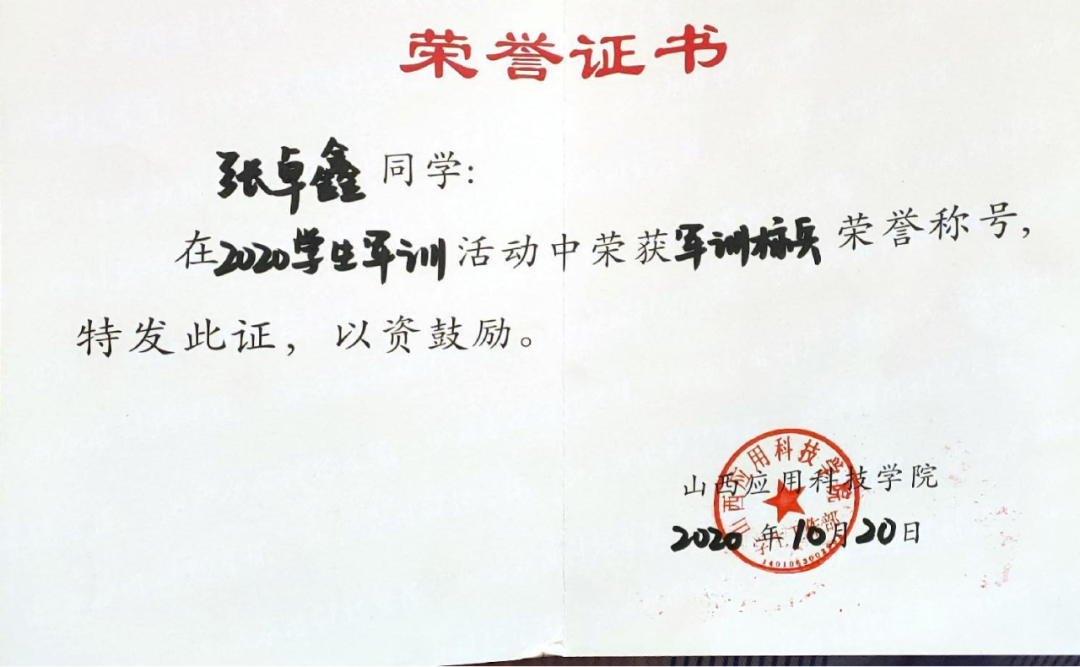 荣誉证书
张卓鑫同学:
在2020学生军训活动中荣获军训标兵荣誉称号，
特发此证，以资鼓励。
山西应用科技学院
学生工作部
山西应用科技学院
2020年10月20日